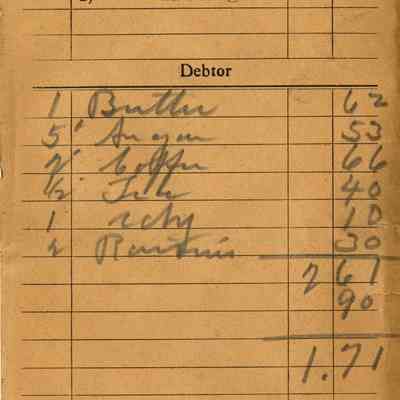 Debtor
1 Butter 62
5 Sugar 53
2 Coffee 66
1/2 Tea 40
1 10
2 Raisins 30
2 61
90
1.71